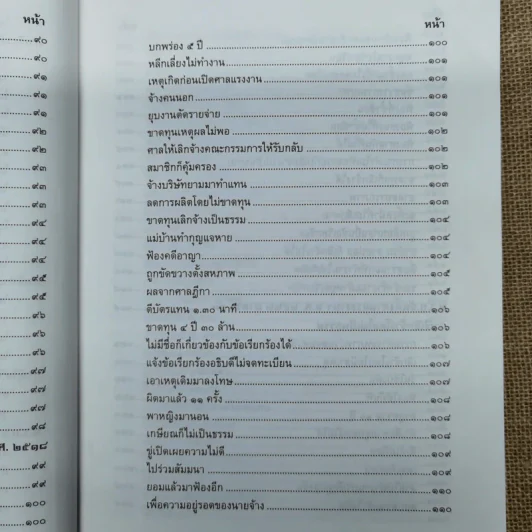 หน้า
๙๐
๙๐
๙๑
๙๑
๙๑
๙๒
๙๒
๙๓
๙๓
๙๓
๙๔
๙๔
๙๔
๙๕
๙๕
๙๖
๙๖
๙๖
๙๗
๙๗
๙๗
๙๘
ศ. ๒๕๑๘
๙๙
๙๙
๑๐๐
๑๐๐
หน้า
บกพร่อง ๕ ปี ๑๐๐
หลีกเลี่ยงไม่ทำงาน ๑๐๑
เหตุเกิดก่อนเปิดศาลแรงงาน ๑๐๑
จ้างคนนอก ๑๐๑
ยุบงานตัดรายจ่าย ๑๐๑
ขาดทุนเหตุผลไม่พอ ๑๐๒
ศาลให้เลิกจ้างคณะกรรมการให้รับกลับ ๑๐๒
สมาชิกก็คุ้มครอง ๑๐๒
จ้างบริษัทยามมาทำแทน ๑๐๓
ลดการผลิตโดยไม่ขาดทุน ๑๐๓
ขาดทุนเลิกจ้างเป็นธรรม ๑๐๔
แม่บ้านทำกุญแจหาย ๑๐๔
ฟ้องคดีอาญา ๑๐๔
ถูกขัดขวางตั้งสหภาพ ๑๐๕
ผลจากศาลฎีกา ๑๐๕
ตีบัตรแทน ๑.๓๐ นาที ๑๐๖
ขาดทุน ๔ ปี ๓๐ ล้าน ๑๐๖
ไม่มีชื่อก็เกี่ยวข้องกับข้อเรียกร้องได้ ๑๐๖
แจ้งข้อเรียกร้องอธิบดีไม่จดทะเบียน ๑๐๗
เอาเหตุเดิมมาลงโทษ ๑๐๗
ผิดมาแล้ว ๑๑ ครั้ง ๑๐๘
พาหญิงมานอน ๑๐๘
เกษียณก็ไม่เป็นธรรม ๑๐๘
ขู่เปิดเผยความไม่ดี ๑๐๙
ไปร่วมสัมมนา ๑๐๙
ยอมแล้วมาฟ้องอีก ๑๑๐
เพื่อความอยู่รอดของนายจ้าง ๑๑๐